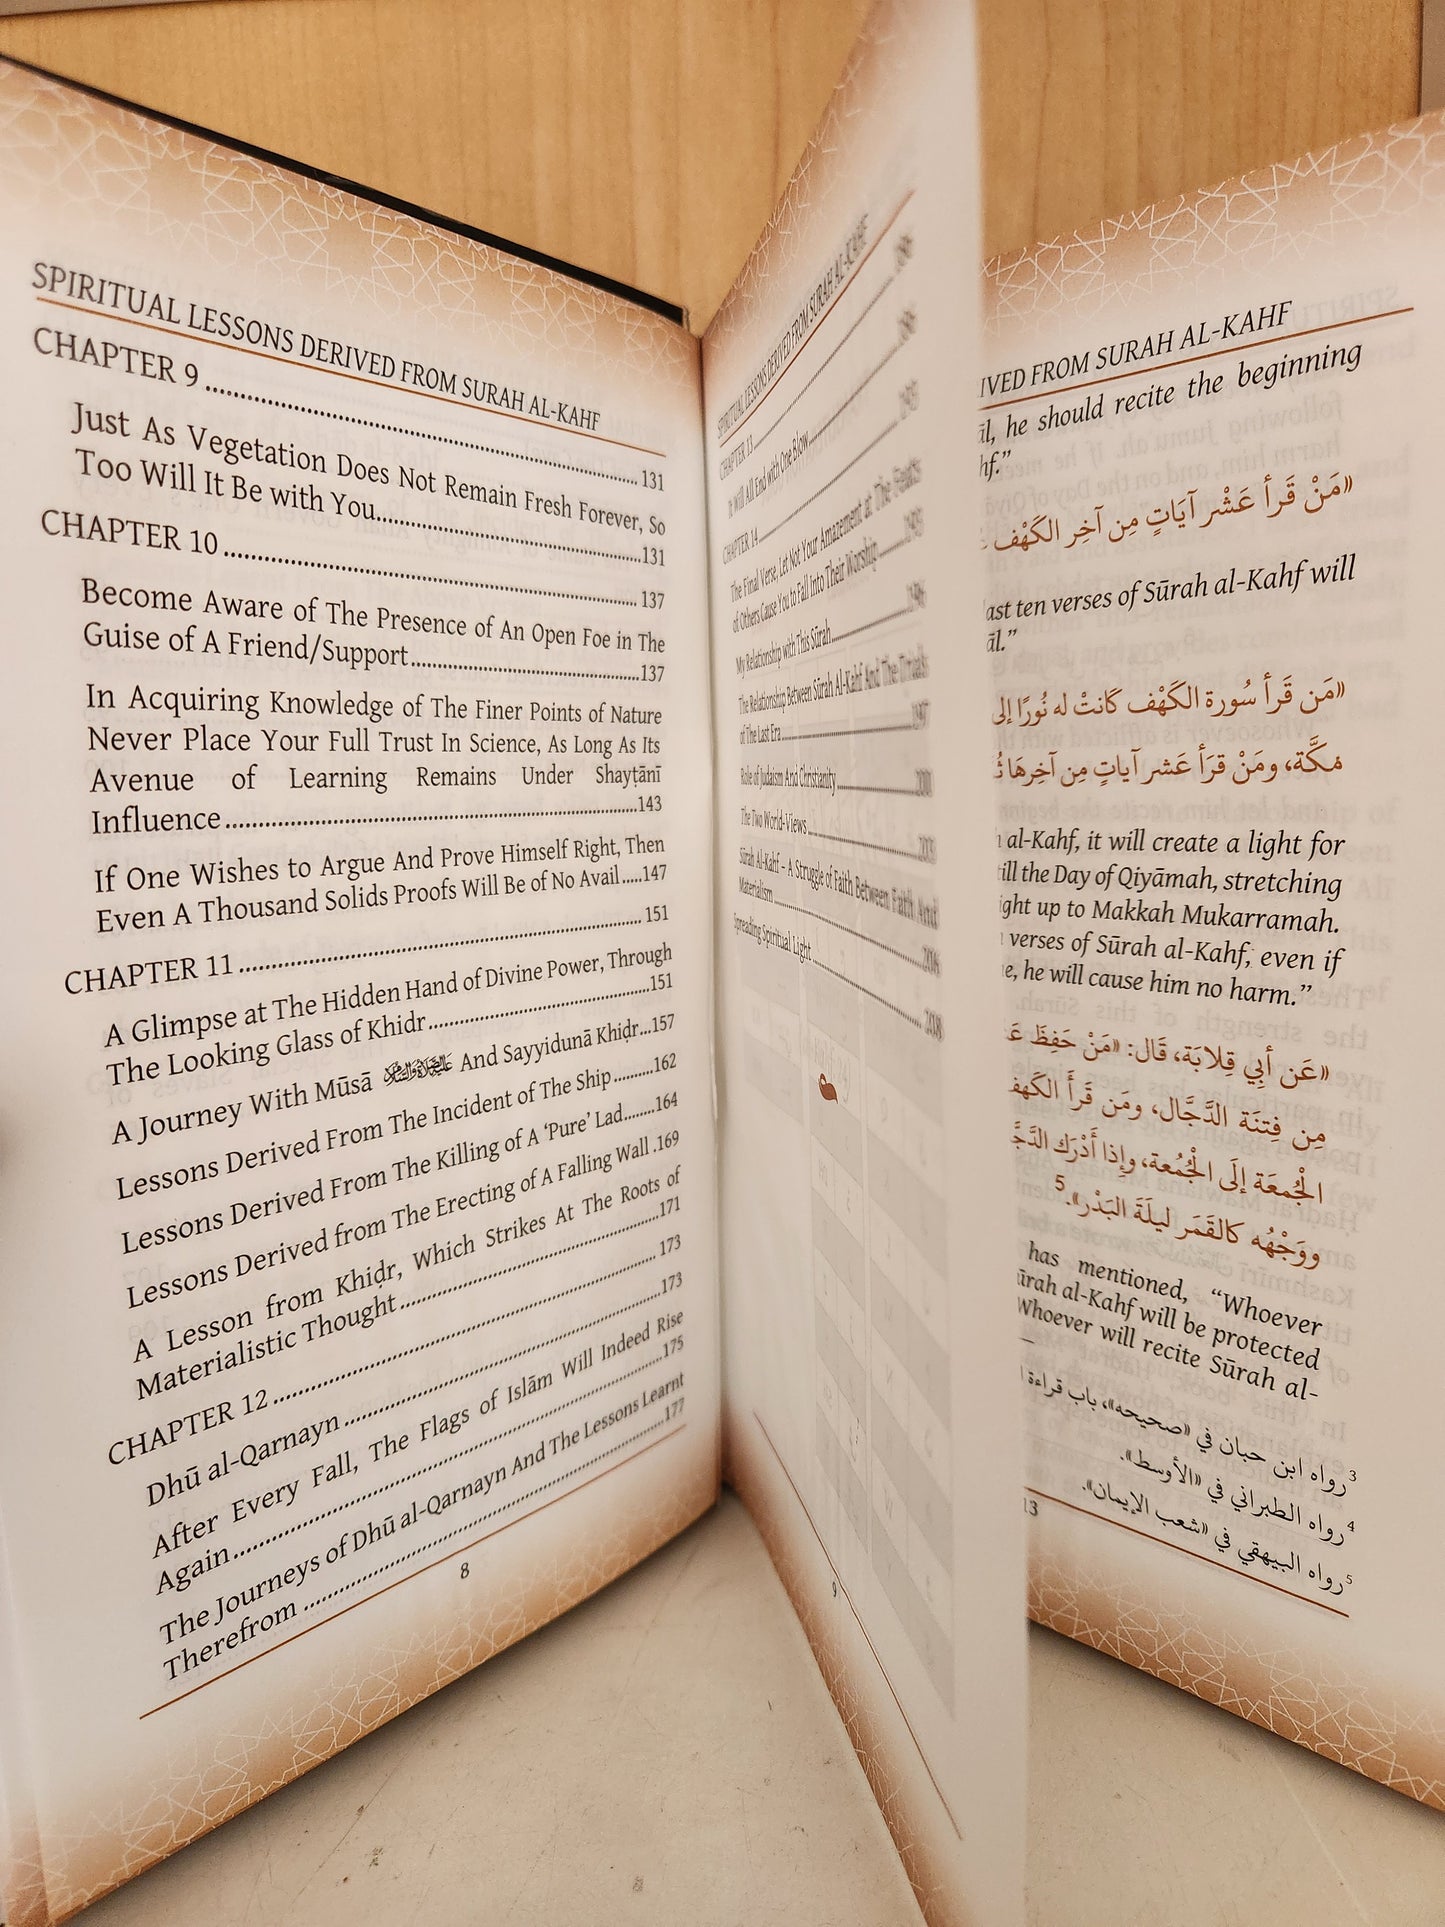 SPIRITUAL LESSONS DERIVED FROM SURAH AL-KAHF
CHAPTER 9 ........ 131
Just As Vegetation Does Not Remain Fresh Forever, So
Too Will It Be with You........131
CHAPTER 10 ........ 137
Become Aware of The Presence of An Open Foe in The
Guise of A Friend/Support........137
In Acquiring Knowledge of The Finer Points of Nature
Never Place Your Full Trust In Science, As Long As Its
Avenue of Learning Remains Under Shayṭānī
Influence........143
If One Wishes to Argue And Prove Himself Right, Then
Even A Thousand Solids Proofs Will Be of No Avail.....147
CHAPTER 11 ........ 151
A Glimpse at The Hidden Hand of Divine Power, Through
The Looking Glass of Khidr........151
A Journey With Mūsā عليه الصلاة والسلام And Sayyidunā Khiḍr...157
Lessons Derived From The Incident of The Ship.........162
Lessons Derived From The Killing of A ‘Pure’ Lad.......164
Lessons Derived from The Erecting of A Falling Wall .169
A Lesson from Khiḍr, Which Strikes At The Roots of
Materialistic Thought........171
CHAPTER 12 ........ 173
Dhū al-Qarnayn ........173
After Every Fall, The Flags of Islām Will Indeed Rise
Again........175
The Journeys of Dhū al-Qarnayn And The Lessons Learnt
Therefrom ........177
8
SPIRITUAL LESSONS DERIVED FROM SURAH AL-KAHF
CHAPTER 13........
It Will All End with One Blow........
CHAPTER 14........
The Final Verse, Let Not Your Amazement at The Feats
of Others Cause You to Fall Into Their Worship........
My Relationship with This Sūrah........196
The Relationship Between Sūrah Al-Kahf And The Trials
of The Last Era........197
Role of Judaism And Christianity........
The Two World-Views........203
Sūrah Al-Kahf – A Struggle of Faith Between Faith And
Materialism........
Spreading Spiritual Light........
9
IVED FROM SURAH AL-KAHF
āl, he should recite the beginning
hf.”
«مَنْ قَرأ عَشْر آيَاتٍ مِن آخِر الكَهْف
ast ten verses of Sūrah al-Kahf will
āl.”
«مَن قَرأ سُورة الكَهْف كَانتْ له نُورًا إلى
مَكَّة، ومَنْ قرَأ عَشر آياتٍ مِن آخِرِهَا
al-Kahf, it will create a light for
ill the Day of Qiyāmah, stretching
ight up to Makkah Mukarramah.
verses of Sūrah al-Kahf, even if
e, he will cause him no harm.”
«عَن أبي قِلابَة، قَال: «مَنْ حَفِظَ
مِن فِتنَة الدَّجَّال، ومَن قَرأَ الكَهف
الْجُمعَة إلَى الْجُمُعة، وإذا أَدْرَك الدَّجَّ
ووَجْهُه كالقَمَر ليلَةَ البَدْر».5
has mentioned, “Whoever
ūrah al-Kahf will be protected
Whoever will recite Sūrah al-
3 رواه ابن حبان في «صحيحه»، باب قراءة
4 رواه الطبراني في «الأوسط».
5 رواه البيهقي في «شعب الإيمان».
13